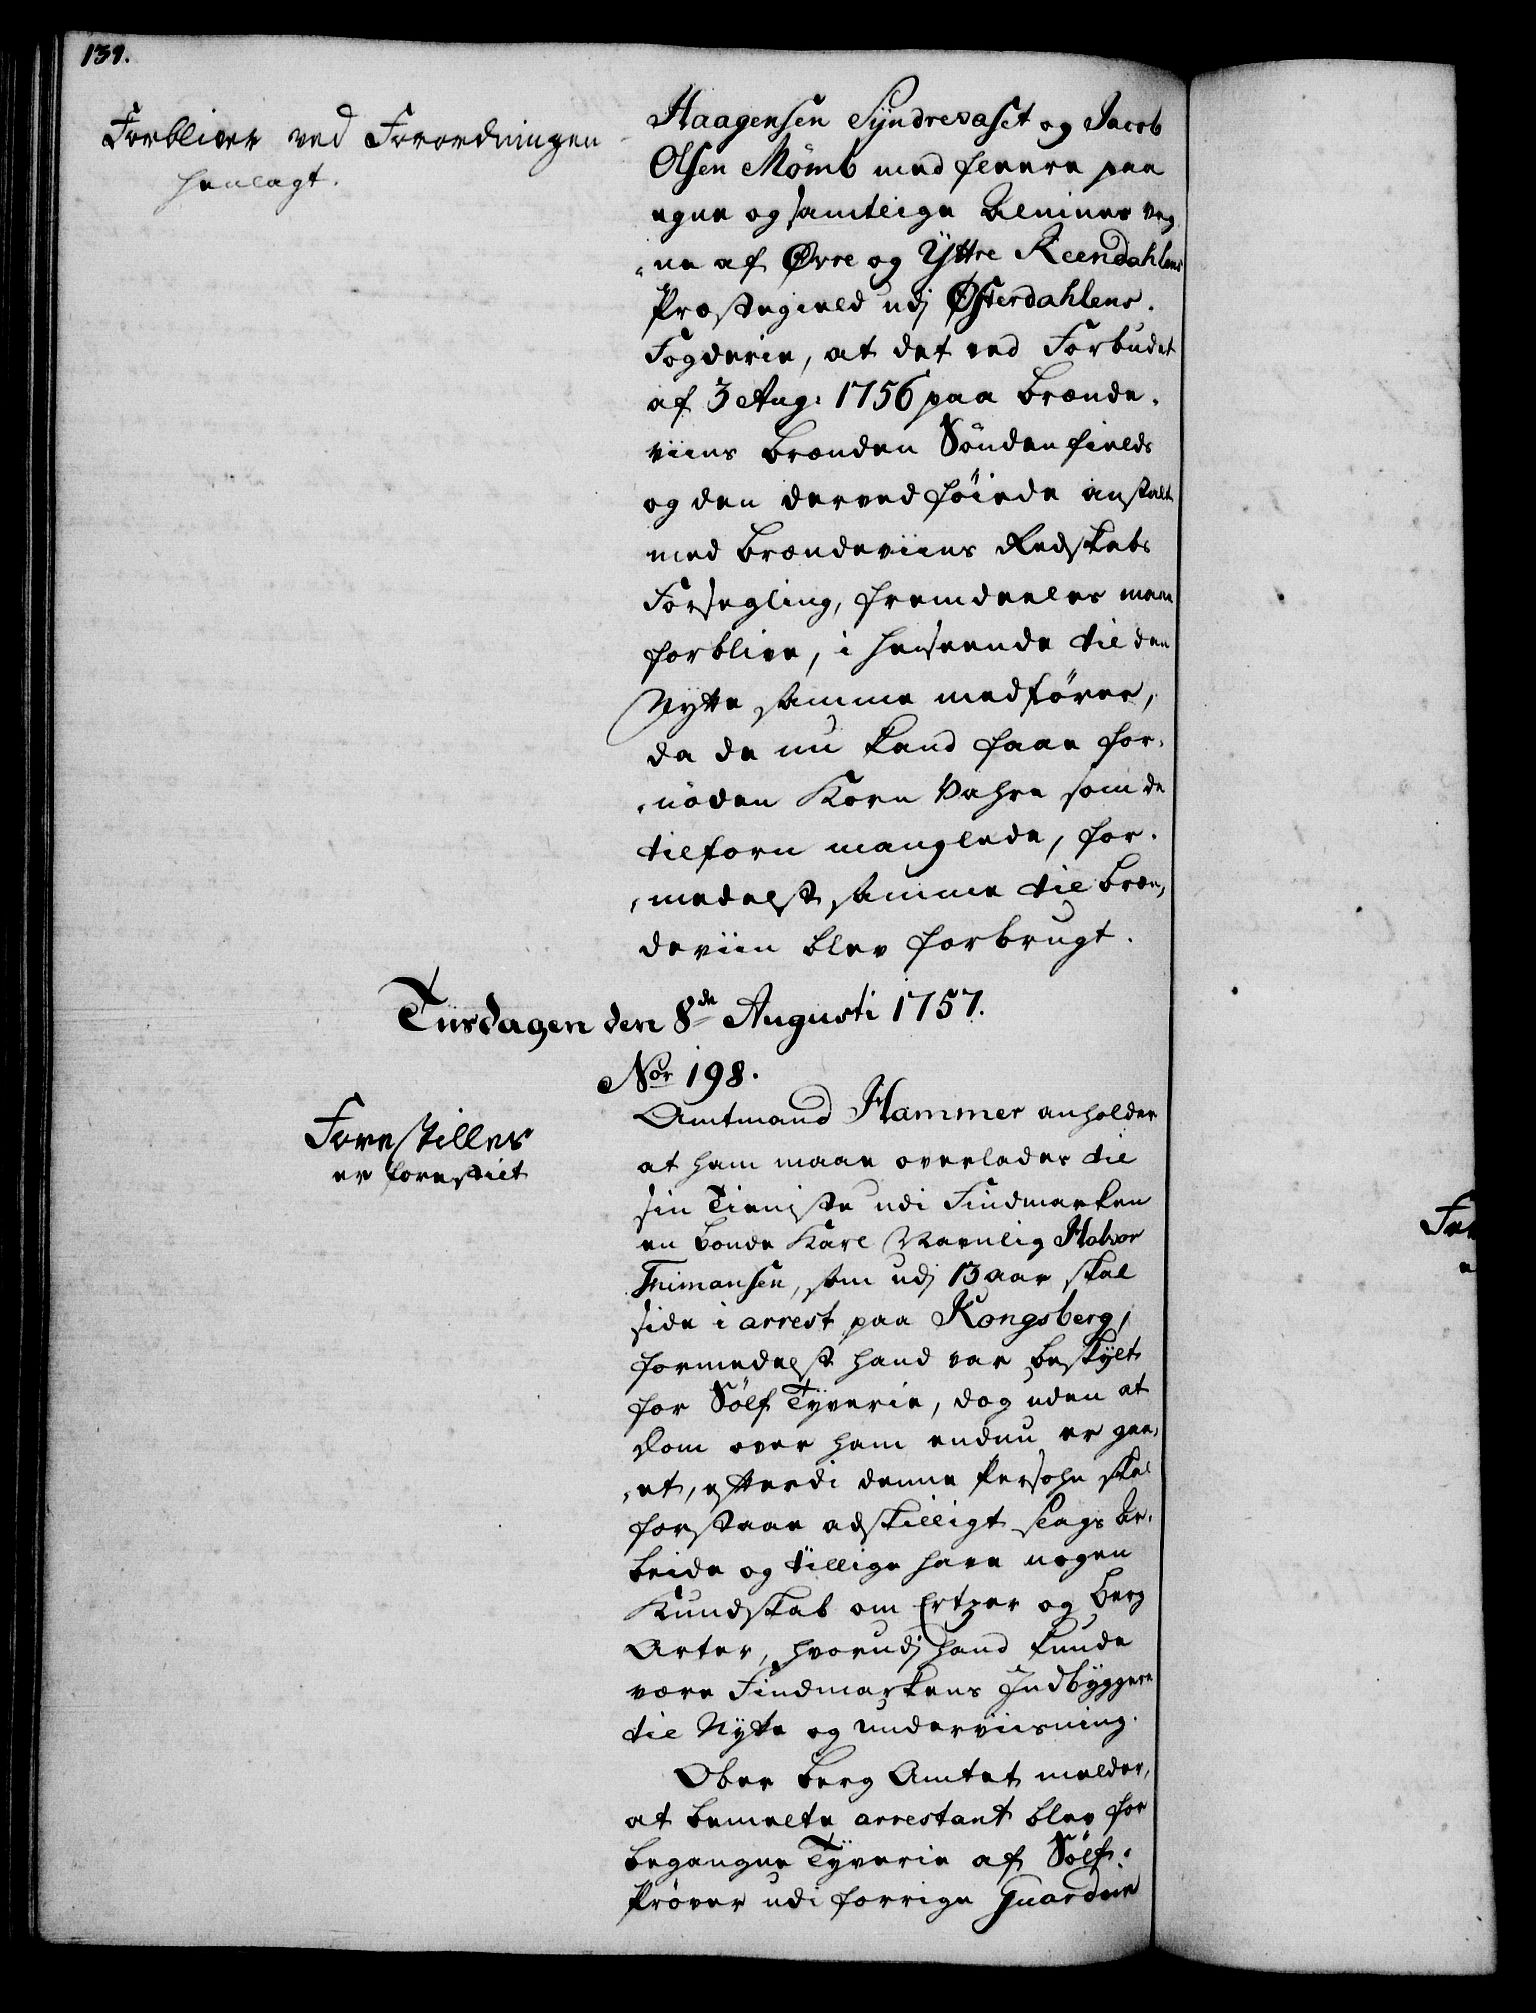 139.
Forbliver ved Forordningen
henlagt.
Haagensen Syndrevaset og Jacob
Olsen Mömb med fleere paa
egne og samtlige Almues veg
ne af Øvre og Yttre Reendahlens
Præstegield udj Østerdahlens
Fogderie, at det ved Forbudet
af 3 Aug: 1756 paa Brænde-
viins Brænden Söndenfields
og den derved föiede anstalt
med Brændeviins Redskabs
Forsegling, fremdeeles maae
forblive, i henseende til den
Nytte samme medförer,
da de nu kand faae for-
nöden Korn Vahre som de
tilforn manglede, for-
medelst samme til Bræn-
deviin blev forbrugt.
Tiisdagen den 8de Augusti 1757.
Nor 198.
Forestilles
er forestilt
Amtmand Hammer anholder
at ham maae overlades til
sin Tieniste udi Findmarken
en Bonde Karl Navnlig Halvor
som udj 13 aar skal
side i arrest paa Kongsberg,
formedelst hand var beskylt
for Sölf Tyverie, dog uden at
Dom over ham endnu er gaa-
et, efterdi denne Persohn skal
forstaae adskilligt slags Ar-
beide og tillige have nogen
Kundskab om Ertzer og Berg
Arter, hvorudj hand kunde
være Findmarkens Indbyggere
til Nytte og underviisning.
Ober Berg Amtet melder,
at bemelte arrestant blev for
begangne Tyverie af Sölf-
Pröver udi forrige Guardein